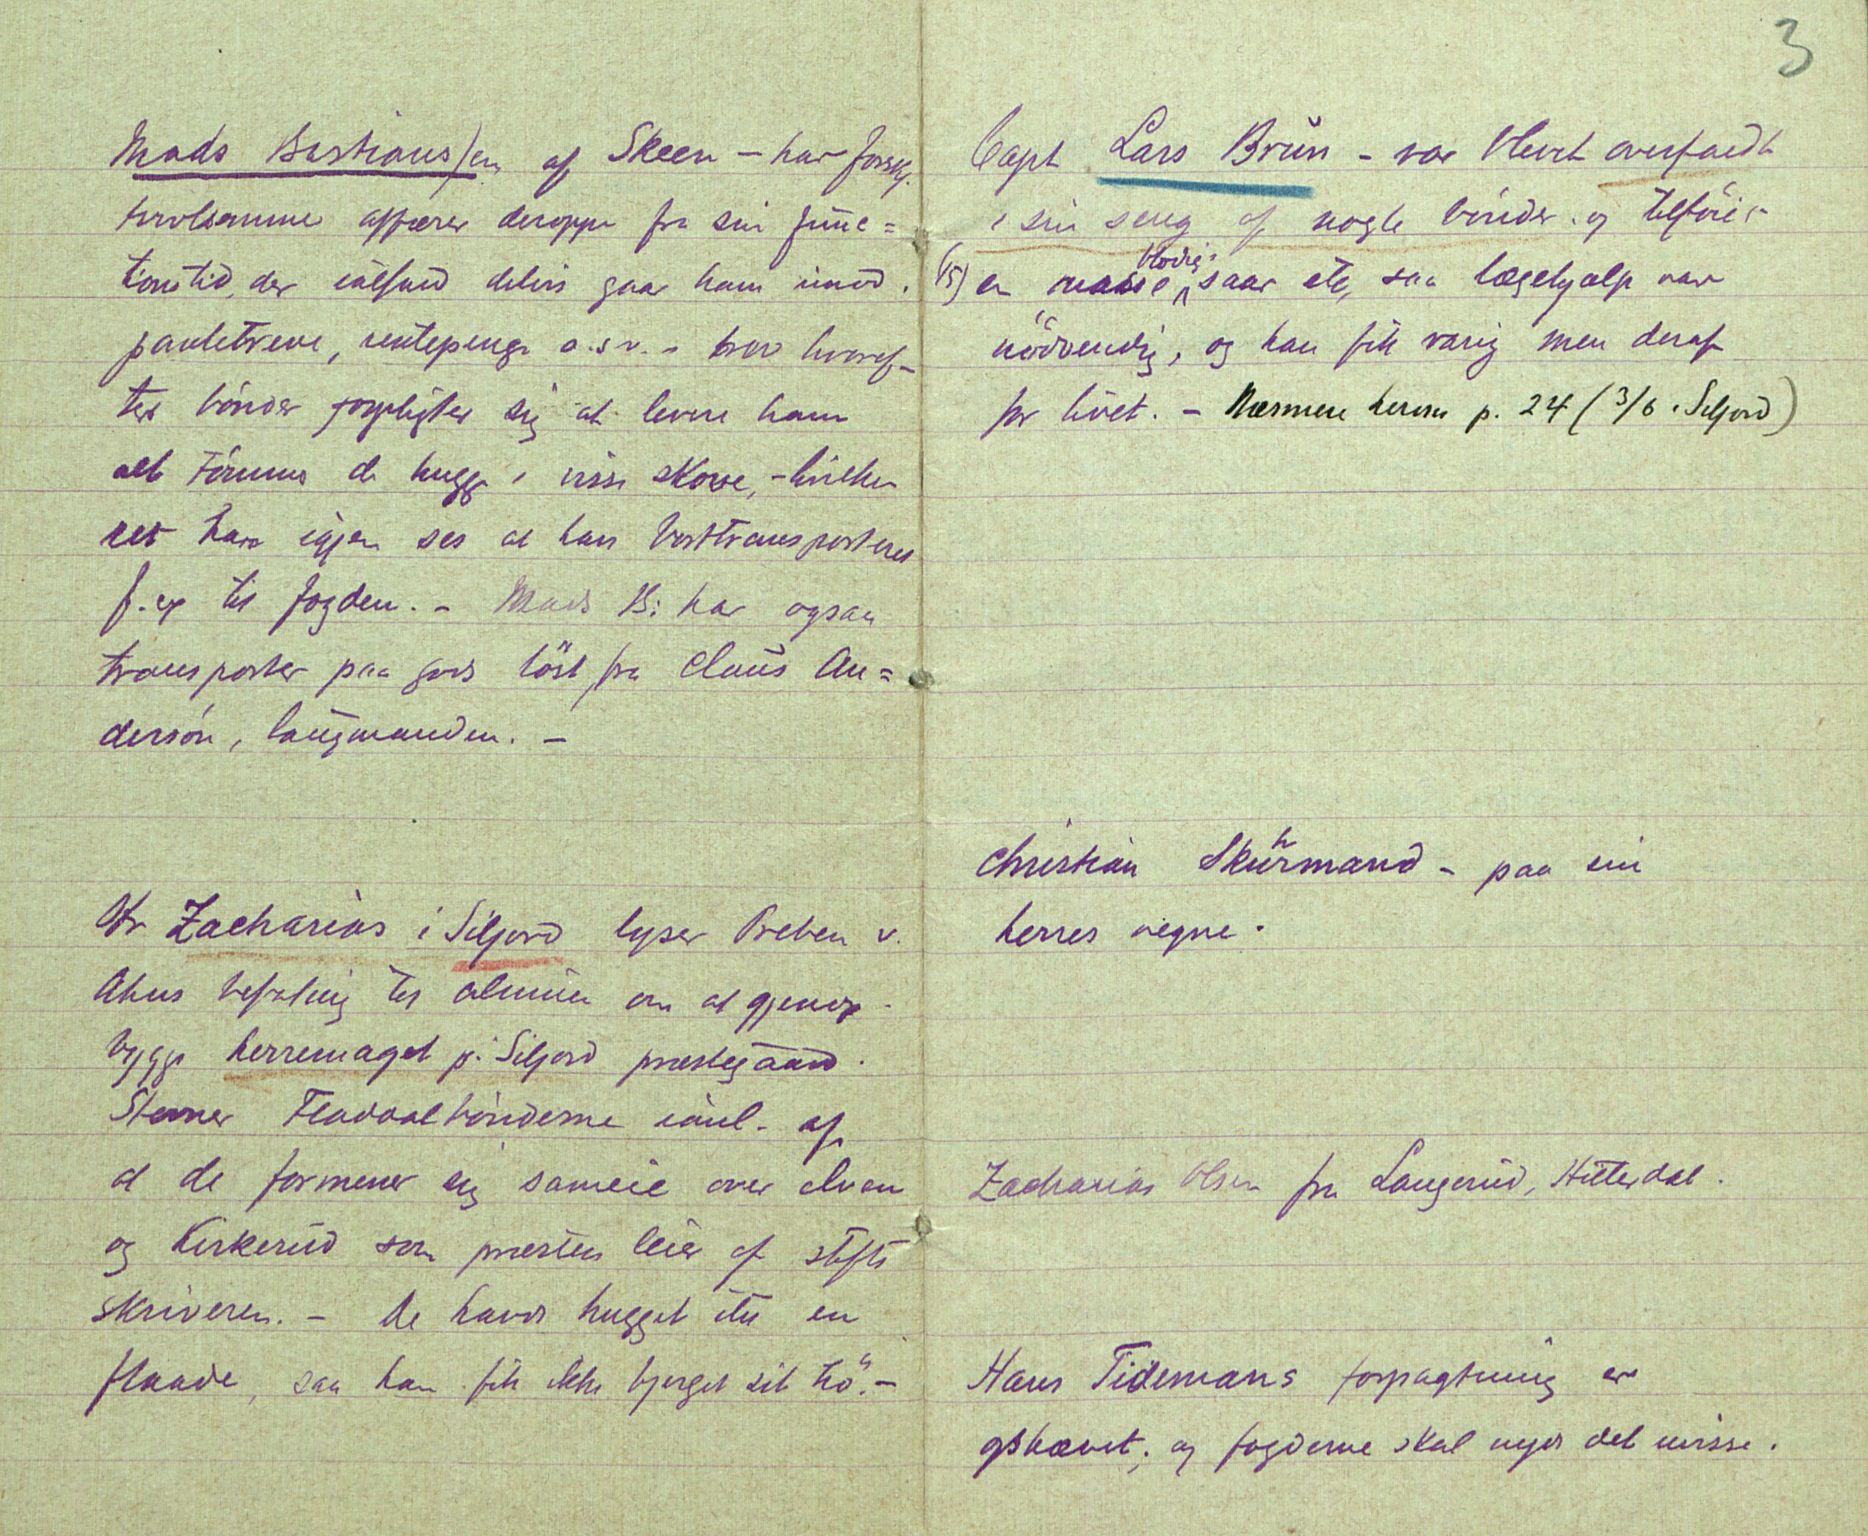 3
Mads Bastians/en af Skeen - har forskj.
tvivlsomme affærer deroppe fra sin func=
tionstid, der ialfald delvis gaar ham imod.
pantebreve, rentepenge o.s.v. - brev hvoref-
ter bönder forpligter sig at levere ham
alt tömmer de hugge i visse skove, - hvilken
ret han igjen ses at han borttransporteres
f. ex til fogden. - Mads B: har ogsaa
transporter paa gods löst fra Claus An=
dersön, laugmanden. -
Hr Zacharias i Siljord lyser Preben v.
Ahns befaling til almuen om at gjenop-
bygge herremaget p. Siljord præstegaard.
Stevner Fladdalbönderne ianl. af
at de formener sig sameie over elven
og Kirkerud som præsten leier af stifts
skriveren. - De havde hugget itu en
flaade, saa han fik ikke bjerget sit hö. -
Capt Lars Brun - var blevet overfaldt
i sin seng af nogle bönder og tilföiet
(15) en masse blodige saar etc, saa lægehjælp var
nödvendig, og han fik varig men deraf
for livet. - Nærmere herom p. 24 (3/6 i Seljord)
Christian Skürmand - paa sin
herres vegne.
Zacharias Olsen fra Langerud, Hitterdal.
Hans Tidemans forpagtning er
ophævet, og fogderne skal nyde det visse.